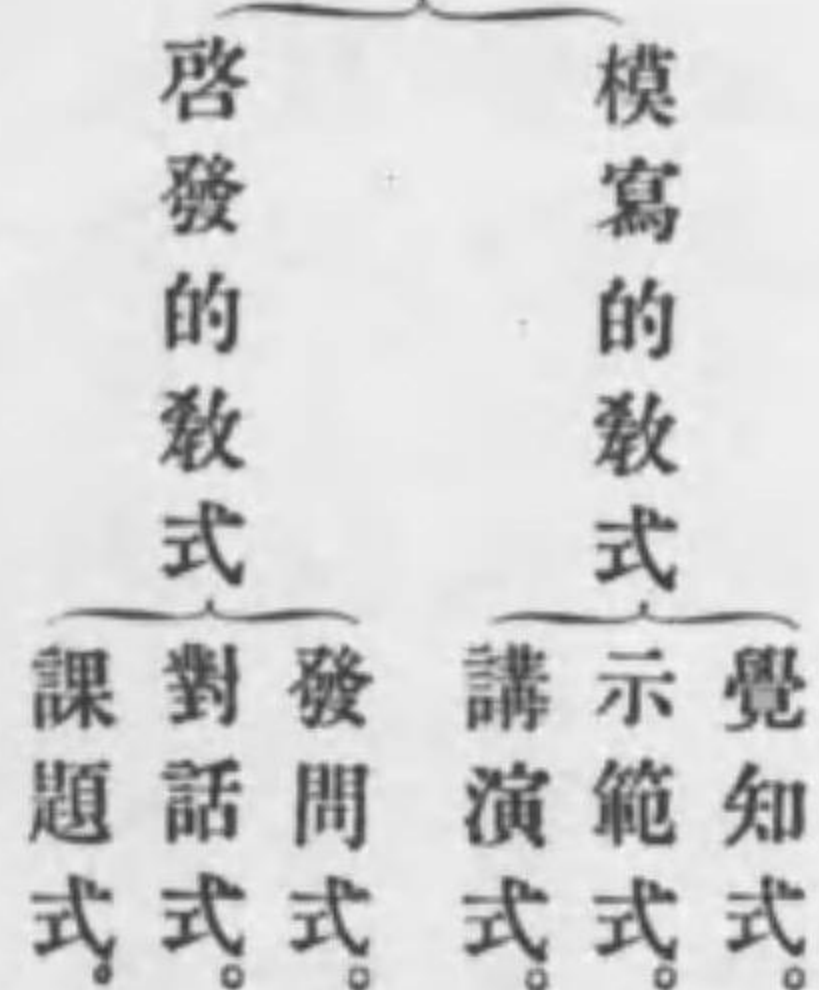 模寫的教式
覺知式。
示範式。
講演式。
啓發的教式
發問式。
對話式。
課題式。